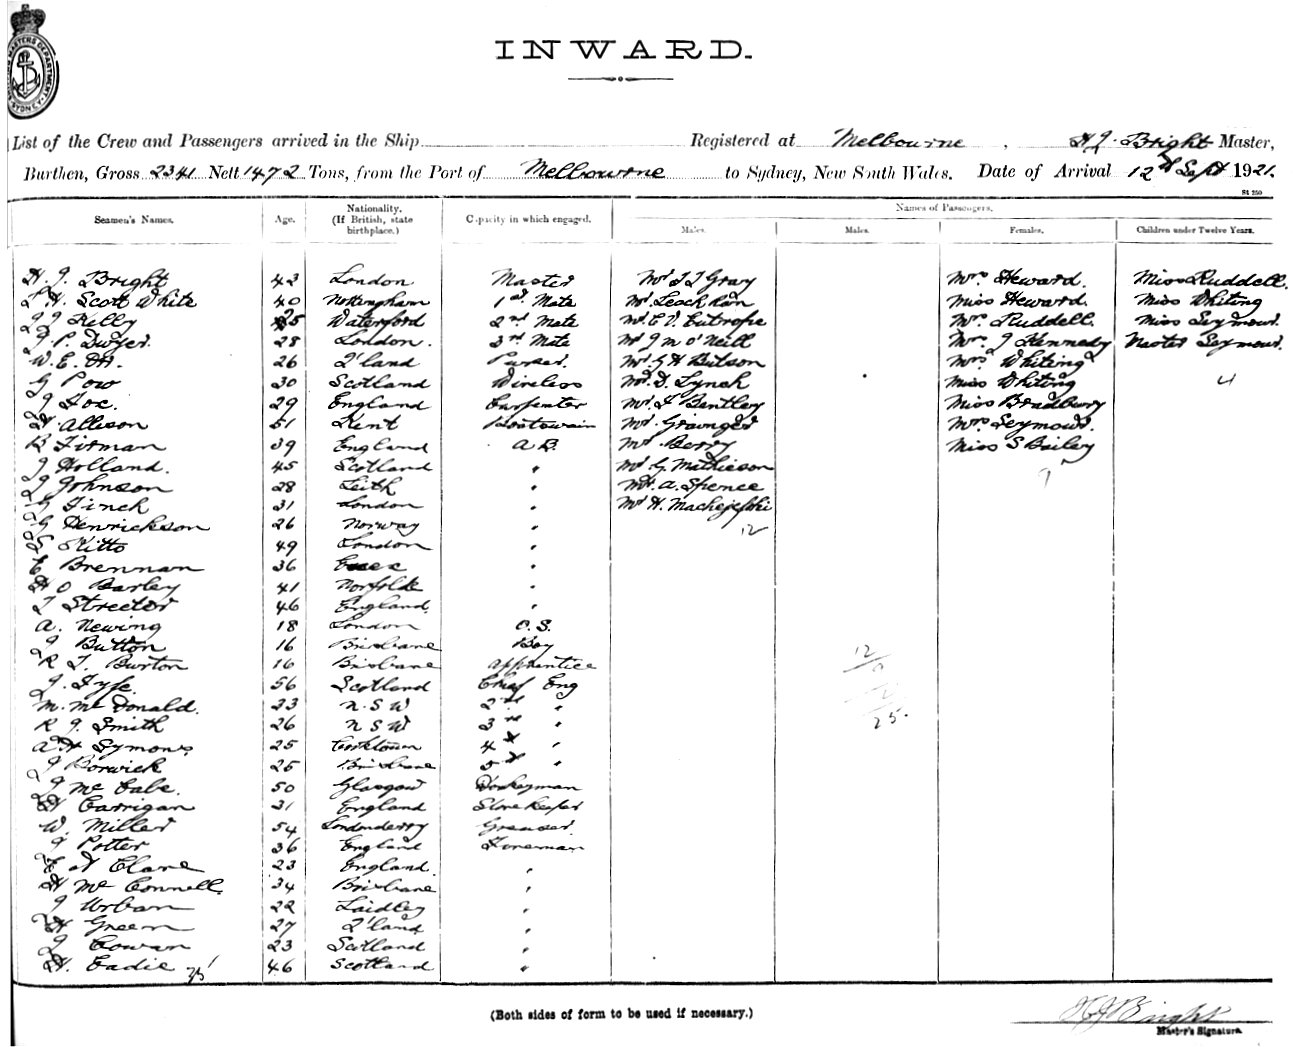 INWARD.
List of the Crew and Passengers arrived in the Ship Registered at Melbourne, H J Bright Master,
Burthen, Gross 2341 Nett 1472 Tons, from the Port of Melbourne to Sydney, New South Wales. Date of Arrival 12th Sept 1921.
St 250
Seamen's Names. Age. Nationality. (If British, state birthplace.) Capacity in which engaged. Names of Passengers.
Males. Males. Females. Children under Twelve Years.
H. J. Bright 43 London Master Mr J J Gray Mrs Heward. Miss Ruddell.
L H. Scott White 40 Nottingham 1st Mate Mr Miss Heward Miss Whiting
J J Kelly 25 Waterford 2nd Mate Mr E V. Eutrope Mrs Ruddell. Miss Seymour.
J P. Dwyer. 28 London. 3rd Mate Mr J M O'Neill Mrs J Kennedy Master Seymour.
W. E. 26 Q'land Purser. Mr G H Butson Mrs Whiting
G Pow 30 Scotland Wireless Mr D. Lynch Miss Whiting 4
J Fox. 29 England Carpenter Mr F Bentley Miss Bradbury
H. Allison 51 Kent Boatswain Mr Grainger Mrs Seymour.
R Firman 39 England A B. Mr Berry Miss S Bailey
J Holland. 45 Scotland " Mr G. Mathieson 9
J Johnson 28 Leith " Mr A. Spence
G Finch 31 London " Mr H.
G Henrickson 26 Norway " 12
S Kitto 49 London "
E Brennan 36 Essex "
H O Barley 41 Norfolk "
J Streeter 46 England. "
A. Newing 18 London O. S.
J Button 16 Brisbane Boy
R J. Burton 16 Brisbane Apprentice 12
J. Fyfe. 56 Scotland Chief Eng
M. McDonald. 33 N. S W 2nd "
R J. Smith 26 N S W 3rd " 25.
A H Symons 25 Cooktown 4th "
J Borwick 25 Brisbane 5th "
J McCabe. 50 Glasgow Donkeyman
H Carrigan 31 England Storekeeper
W. Miller 54 Londonderry Greaser.
J Potter 36 England Fireman
A Clare 23 England. "
H McConnell. 34 Brisbane "
J Urban 22 Laidley "
H Green 27 Q'land "
J Cowan 23 Scotland "
H. Eadie 35 46 Scotland "
(Both sides of form to be used if necessary.)
H J Bright
Master's Signature.